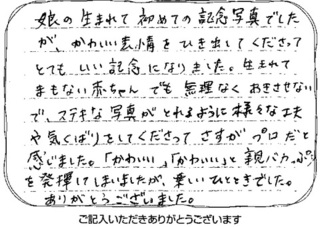 娘の生まれて初めての記念写真でした
が、かわいい表情をひき出してくださって
とてもいい記念になりました。生まれて
まもない赤ちゃんでも無理なくおきさせない
で、ステキな写真がとれるように様々な工夫
や気くばりをしてくださってさすがプロだと
感じました。「かわいい」、「かわいい」と親バカっぷり
を発揮してしまいましたが、楽しいひとときでした。
ありがとうございました。
ご記入いただきありがとうございます